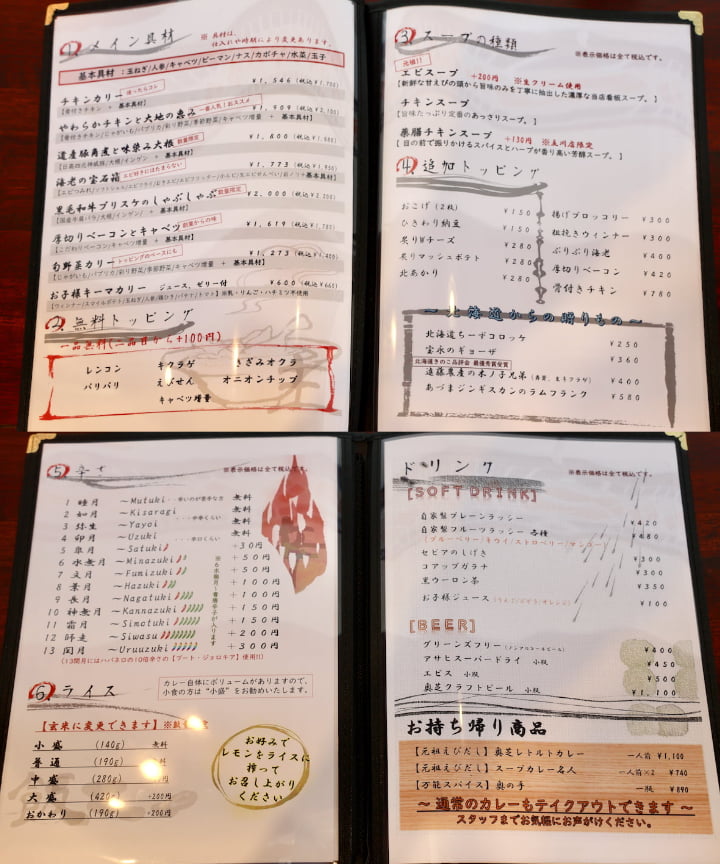 ① メイン具材
※ 具材は、
仕入れや時期により変更あります。
基本具材 : 玉ねぎ/人参/キャベツ/ピーマン/ナス/カボチャ/水菜/玉子
チキンカリー 迷ったらコレ ¥1,546 (税込¥1,700)
【骨付きチキン + 基本具材】
やわらかチキンと大地の恵み 一番人気!おススメ ¥1,909 (税込¥2,100)
【骨付きチキン/じゃがいも/パプリカ/彩り野菜/季節野菜/キャベツ増量 + 基本具材】
道産豚角煮と味染み大根 数量限定 ¥1,800 (税込¥1,980)
【日高四元神威豚/大根/インゲン + 基本具材】
海老の宝石箱 エビ好きにはたまらない ¥1,773 (税込¥1,950)
黒毛和牛ブリスケのしゃぶしゃぶ 数量限定 ¥2,000 (税込¥2,200)
【国産牛肩バラ/大根/インゲン + 基本具材】
厚切りベーコンとキャベツ 創業からの味 ¥1,619 (税込¥1,780)
【こだわりベーコン/キャベツ増量 + 基本具材】
旬野菜カリー トッピングのベースにも ¥1,273 (税込¥1,400)
【じゃがいも/パプリカ/彩り野菜/季節野菜/キャベツ増量 + 基本具材】
お子様キーマカリー ジュース、ゼリー付 ¥600 (税込¥660)
【ウィンナー/スマイルポテト/玉ねぎ/人参/鶏ひき/バナナ/トマト】※乳・りんご・ハチミツ不使用
② 無料トッピング
一品無料(二品目から+100円)
レンコン キクラゲ きざみオクラ
パリパリ えびせん オニオンチップ
キャベツ増量
③ スープの種類
※表示価格は全て税込です。
元祖!!
エビスープ +200円 ※生クリーム使用
【新鮮な甘えびの頭から旨味のみを丁寧に抽出した濃厚な当店看板スープ。】
チキンスープ
【旨味たっぷり定番のあっさりスープ。】
薬膳チキンスープ +130円 ※真川店限定
【目の前で振りかけるスパイスとハーブが香り高い芳醇スープ。】
④ 追加トッピング
おこげ (2枚) ¥150
ひきわり納豆 ¥150
炙りWチーズ ¥280
炙りマッシュポテト ¥280
北あかり ¥280
揚げブロッコリー ¥300
粗挽きウィンナー ¥300
ぷりぷり海老 ¥400
厚切りベーコン ¥420
骨付きチキン ¥780
～北海道からの贈りもの～
北海道ちーずコロッケ ¥250
宝永のギョーザ ¥360
北海道きのこ品評会 最優秀賞受賞
遠藤農産の木ノ子兄弟 (舞茸、まるフラゲ) ¥400
あづまジンギスカンのラムフランク ¥580
⑤ 辛さ
※表示価格は全て税込です。
1 睦月 ～Mutuki・・・辛いのが苦手な方 無料
2 如月 ～Kisaragi 無料
3 弥生 ～Yayoi ・・・中辛くらい 無料
4 卯月 ～Uzuki ・・・辛口くらい 無料
5 皐月 ～Satuki +30円
6 水無月～Minazuki +50円
7 文月 ～Fumizuki +50円
8 葉月 ～Hazuki +100円
9 長月 ～Nagatuki +100円
10 神無月～Kannazuki +150円
11 霜月 ～Simotuki +150円
12 師走 ～Siwasu +200円
13 閏月 ～Uruuzuki +300円
※6水無月～青唐辛子が入ります
(13閏月にはハバネロの10倍辛さの【ブート・ジョロキア】使用!!)
⑥ ライス
カレー自体にボリュームがありますので、
小食の方は"小盛"をお勧めいたします。
【玄米に変更できます】※数量限定
小盛 (140g) 無料
普通 (190g) 無料
中盛 (280g)
大盛 (420g) +200円
おかわり (190g) +200円
お好みで
レモンをライスに
搾って
お召し上がり
ください
ドリンク
※表示価格は全て税込です。
[SOFT DRINK]
自家製プレーンラッシー ¥420
自家製フルーツラッシー 各種 ¥480
(ブルーベリー/キウイ/ストロベリー/マンゴー)
セピアのしげき ¥300
コアップガラナ ¥300
黒ウーロン茶 ¥350
お子様ジュース (りんご/ぶどう/オレンジ) ¥100
[BEER]
グリーンズフリー (ノンアルコールビール) ¥400
アサヒスーパードライ 小瓶 ¥450
エビス 小瓶 ¥500
奥芝クラフトビール 小瓶 ¥1,100
お持ち帰り商品
【元祖えびだし】奥芝レトルトカレー 一人前 ¥1,100
【元祖えびだし】スープカレー名人 一人前×2 ¥740
【万能スパイス】奥の手 一瓶 ¥890
～ 通常のカレーもテイクアウトできます ～
スタッフまでお気軽にお声がけください。